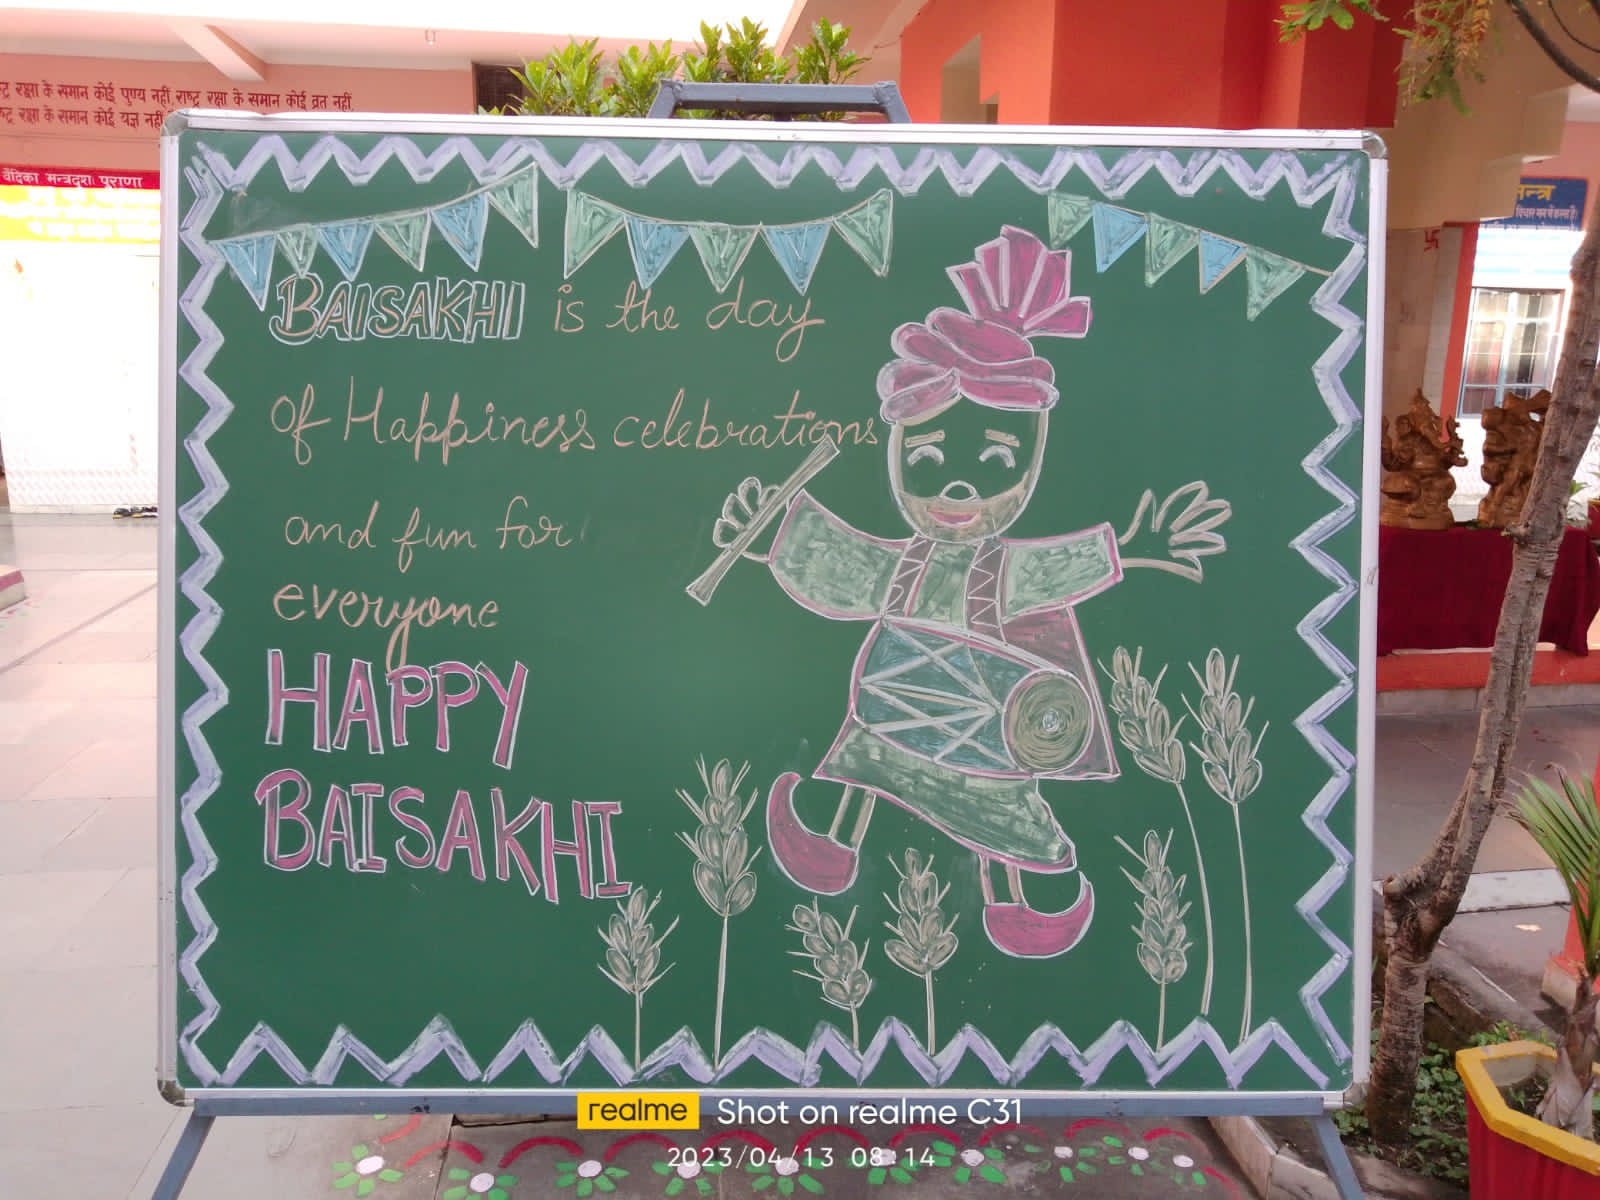 ष्ट्र रक्षा के समान कोई पुण्य नहीं, राष्ट्र रक्षा के समान कोई व्रत नहीं,
ष्ट्र रक्षा के समान कोई यज्ञ नहीं
पुराणा
मन्त्र
BAISAKHI is the day
of Happiness celebrations
and fun for
everyone
HAPPY
BAISAKHI
realme Shot on realme C31
2023/04/13 08:14